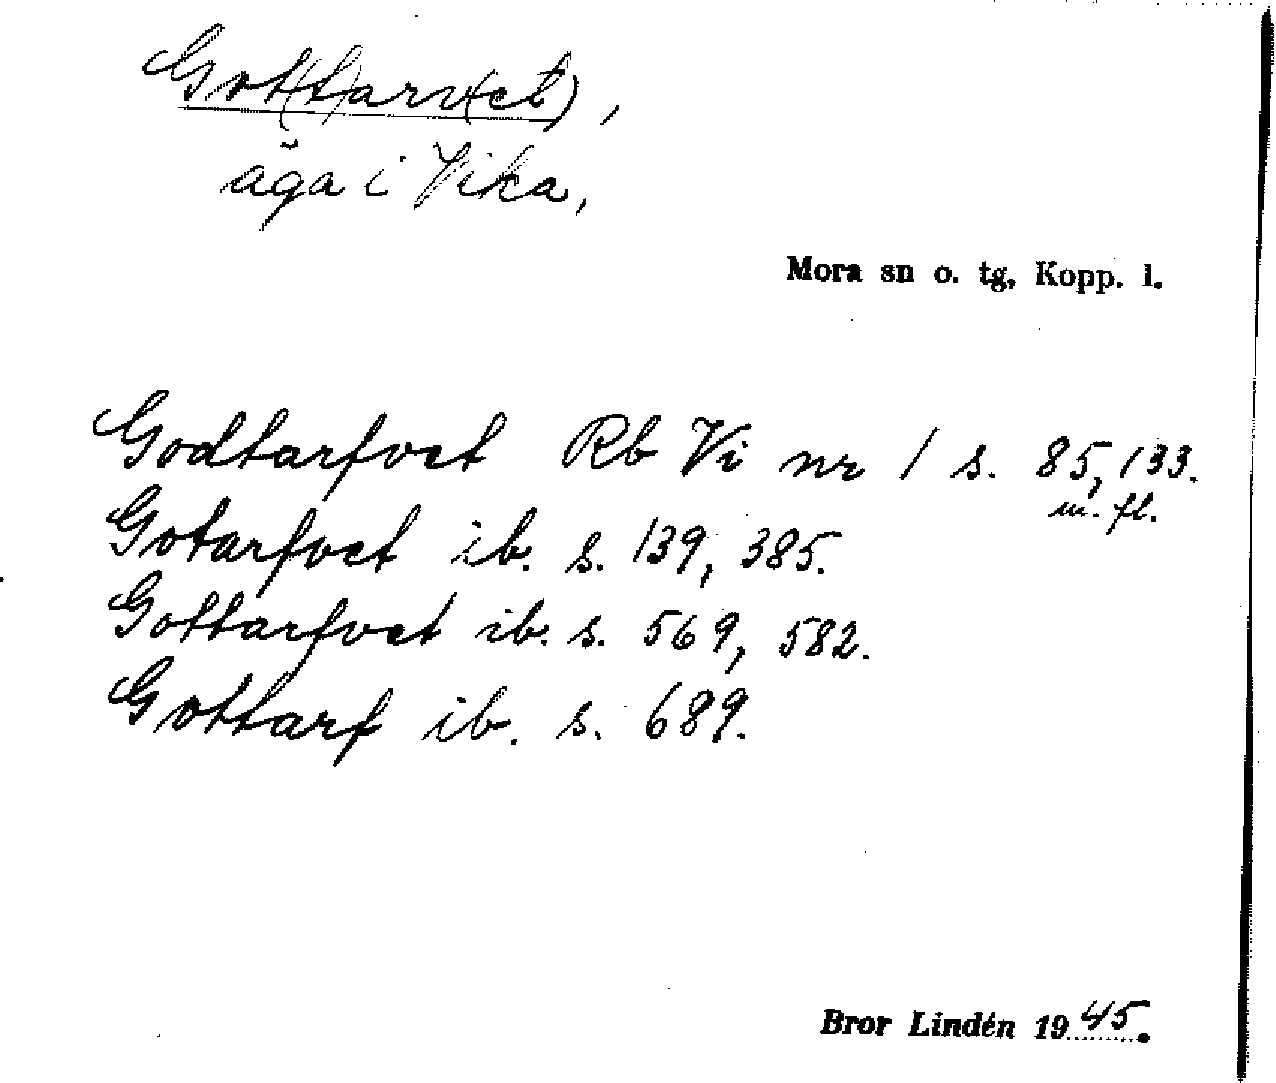 Got(t)arv(et),
äga i Vika,
Mora sn o. tg, Kopp. l.
Godtarfvet Rb Vi nr 1 s. 85, 133.
m. fl.
Gotarfvet ib. s. 139, 385.
Gottarfvet ib. s. 569, 582.
Gottarf ib. s. 689.
Bror Lindén 1945.